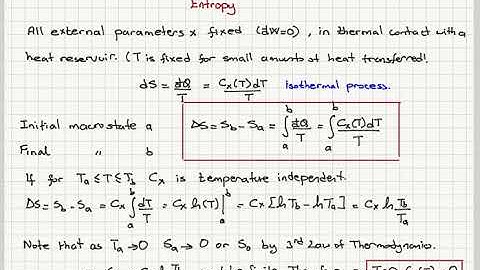 Entropy
All external parameters x fixed (đW=0), in thermal contact with a
heat reservoir. (T is fixed for small amounts of heat transferred).
dS = đQ/T = Cx(T)dT/T Isothermal process.
Initial macrostate a ΔS = Sb - Sa = ∫ₐᵇ đQ/T = ∫ₐᵇ Cx(T)dT/T
Final " b
If for Ta ≤ T ≤ Tb Cx is temperature independent.
ΔS = Sb - Sa = Cx ∫ₐᵇ dT/T = Cx ln(T)|ₐᵇ = Cx [ln Tb - ln Ta] = Cx ln Tb/Ta
Note that as Ta → 0 Sa → 0 or S0 by 3rd Law of Thermodynamics.